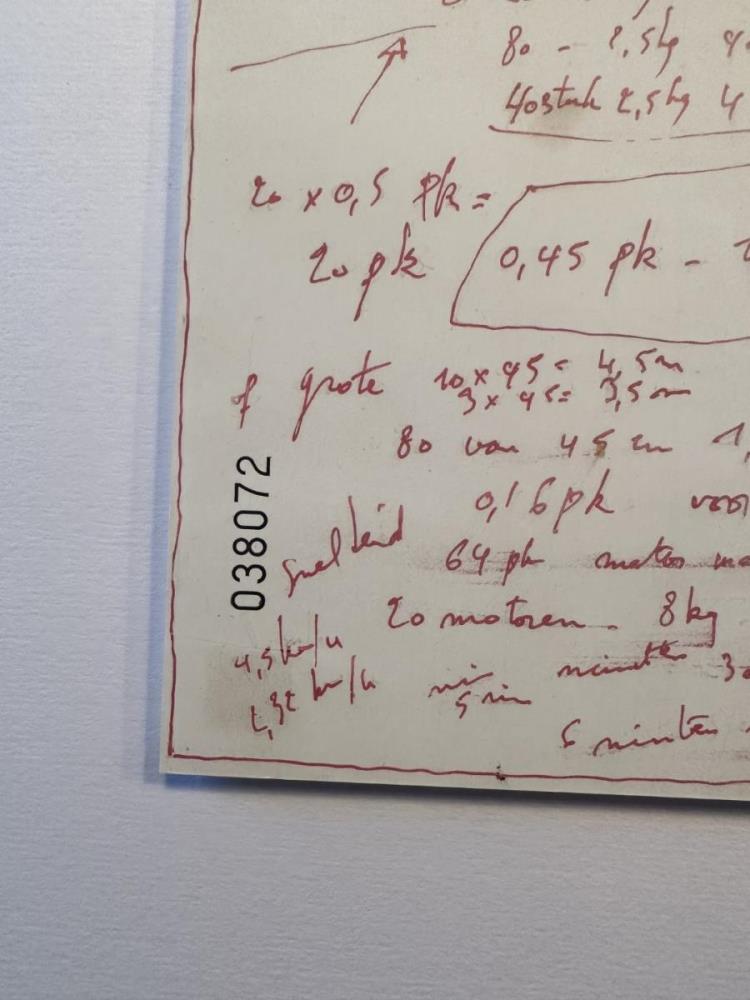 80 - 2,5kg
40 stuk 2,5kg 4
20 x 0,5 pk =
20 pk
0,45 pk -
of grote 10 x 45 = 4,5m
3 x 45 = 3,5m
80 van 45 cm 1,
0,16 pk voor
snelheid 64 pk motor
20 motoren - 8kg
4,5 km/u
2,32 km/u
5 min minuten 30
6 minuten
038072